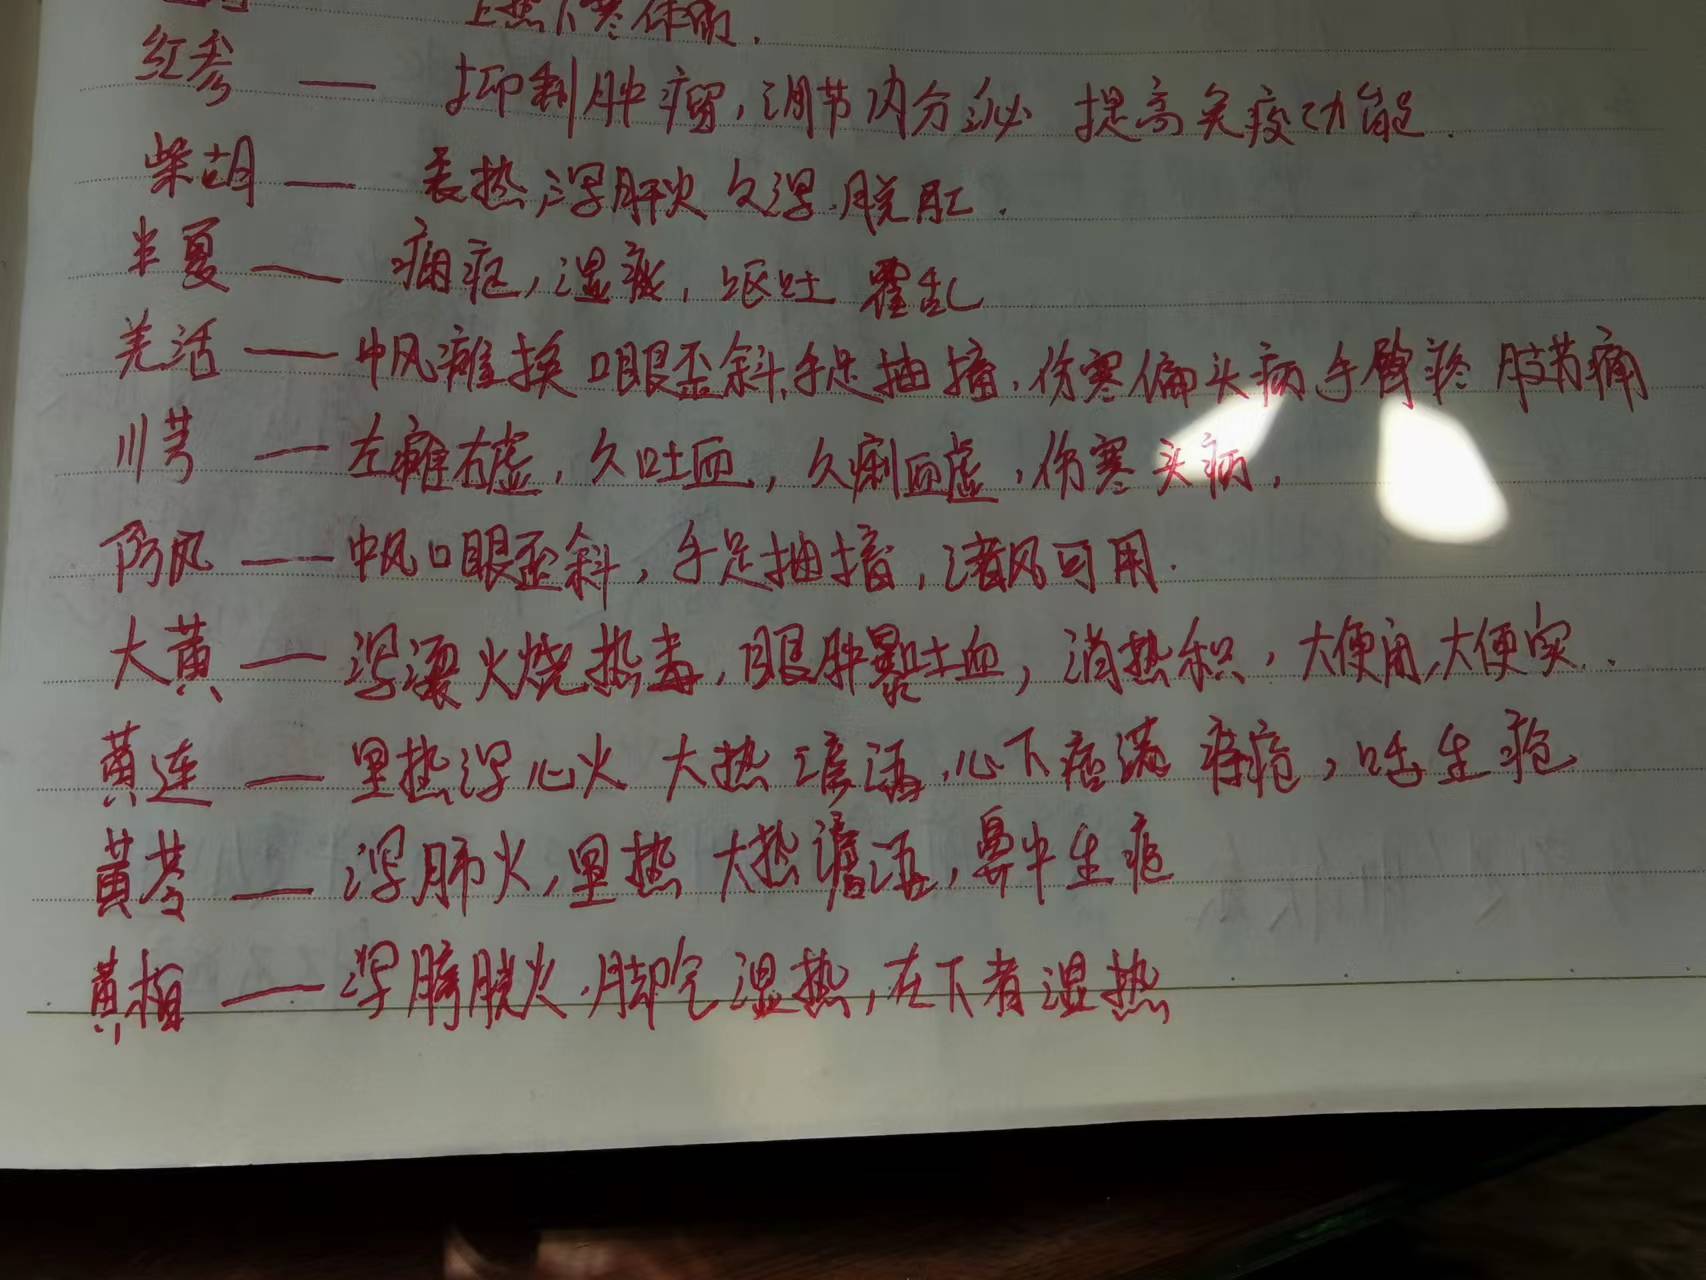 上热下寒休用.
红参 — 抑制肿瘤,调节内分泌 提高免疫功能.
柴胡 — 表热 泻肝火 久泻.脱肛.
半夏 — 痈疽,湿痰,呕吐 霍乱
羌活 — 中风瘫换 口眼歪斜,手足抽搐.伤寒偏头痛 手臂疼 肢节痛
川芎 — 左瘫右虚,久吐血,久痢血虚,伤寒头痛,
防风 — 中风口眼歪斜,手足抽搐,诸风可用.
大黄 — 泻 火烧热毒,眼肿暴吐血,消热积,大便闭,大便实..
黄连 — 里热泻心火 大热 语.心下痞满 疮,口舌生疮
黄芩 — 泻肺火,里热 大热谵语,鼻中生疮
黄柏 — 泻膀胱火.脚气湿热,在下者湿热